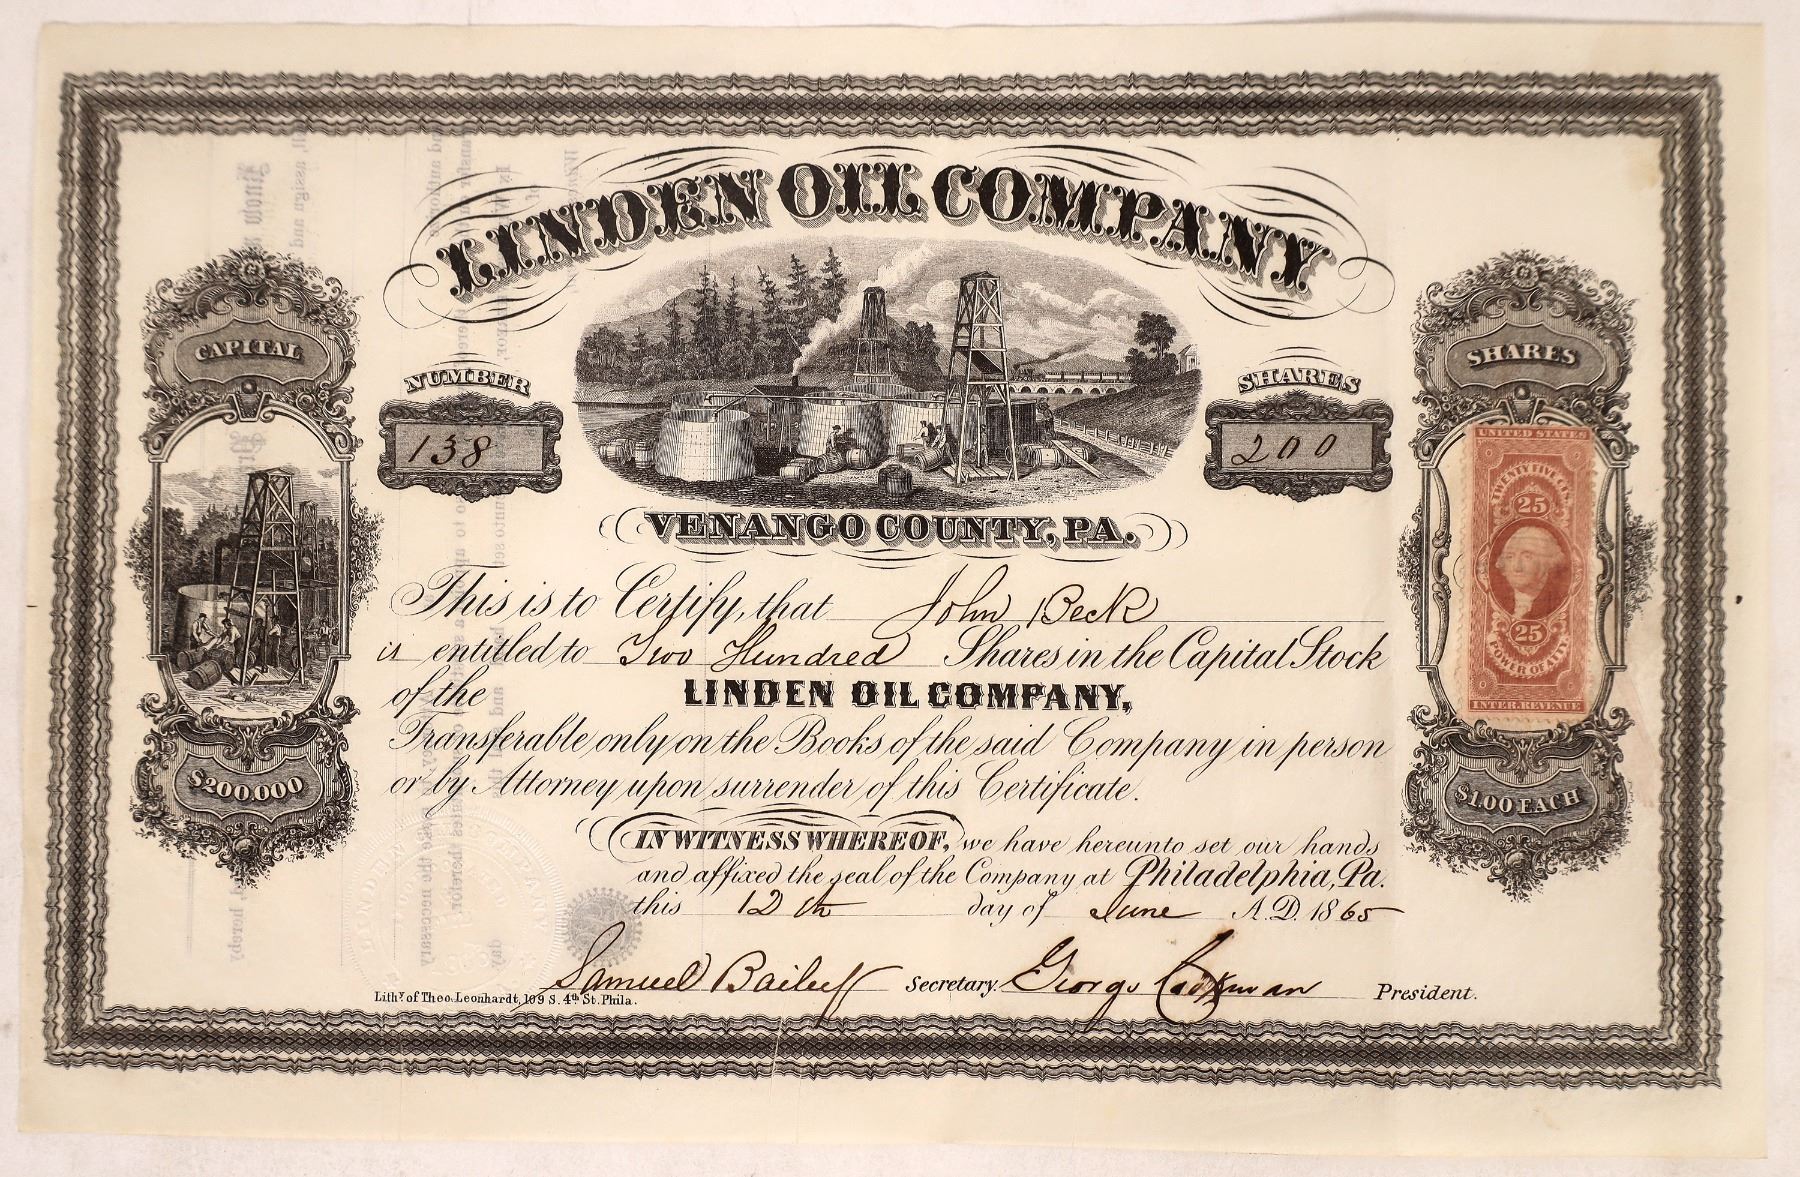 LINDEN OIL COMPANY
CAPITAL
$200.000
NUMBER
138
SHARES
200
SHARES
$1.00 EACH
UNITED STATES
TWENTY FIVE CTS.
25
25
POWER OF ATT'Y
INTER. REVENUE
VENANGO COUNTY, PA.
This is to Certify, that John Beck
is entitled to Two Hundred Shares in the Capital Stock
of the LINDEN OIL COMPANY,
Transferable only on the Books of the said Company in person
or by Attorney upon surrender of this Certificate.
IN WITNESS WHEREOF, we have hereunto set our hands
and affixed the seal of the Company at Philadelphia, Pa.
this 12th day of June A.D. 1865
Samuel Secretary. George President.
Lithy. of Theo. Leonhardt, 109 S. 4th St. Phila.